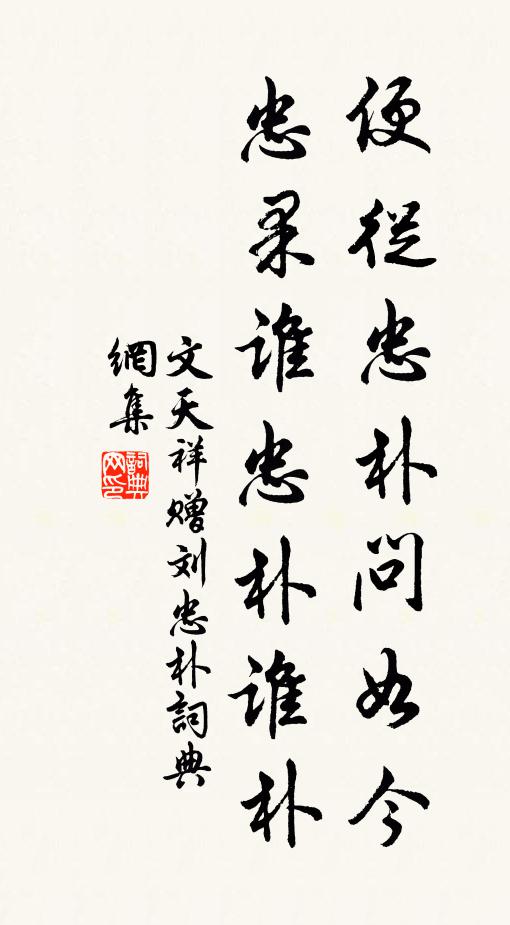 便從忠朴問如今
忠果誰忠朴誰朴
文天祥赠刘忠朴詞典
網集
詞典網印